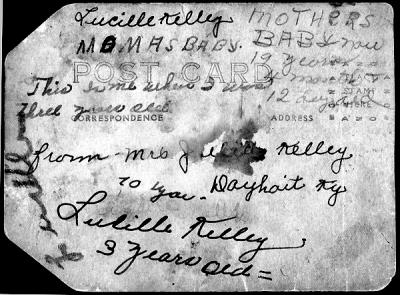 Lucille Kelly
MOTHERS
MOMASBABY.
BABY now
POST CARD
12 years
This is me when I was
three year old
12 days
STAMP
HERE
CORRESPONDENCE
ADDRESS
from Mrs J Kelley
to you. Dayhoit Ky
Lucille Kelly
3 years old =